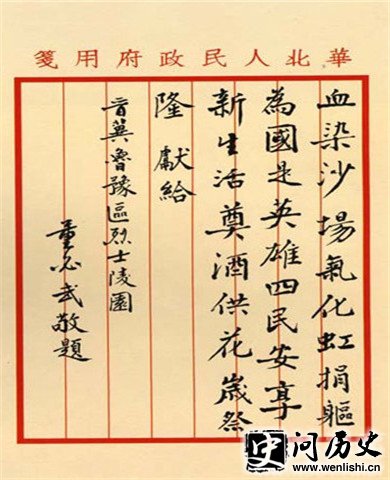 華北人民政府用箋
血染沙場氣化虹捐軀
為國是英雄四民安享
新生活奠酒供花歲祭
隆獻給
晉冀魯豫區烈士陵園
董必武敬題
问历史
www.wenlishi.cn